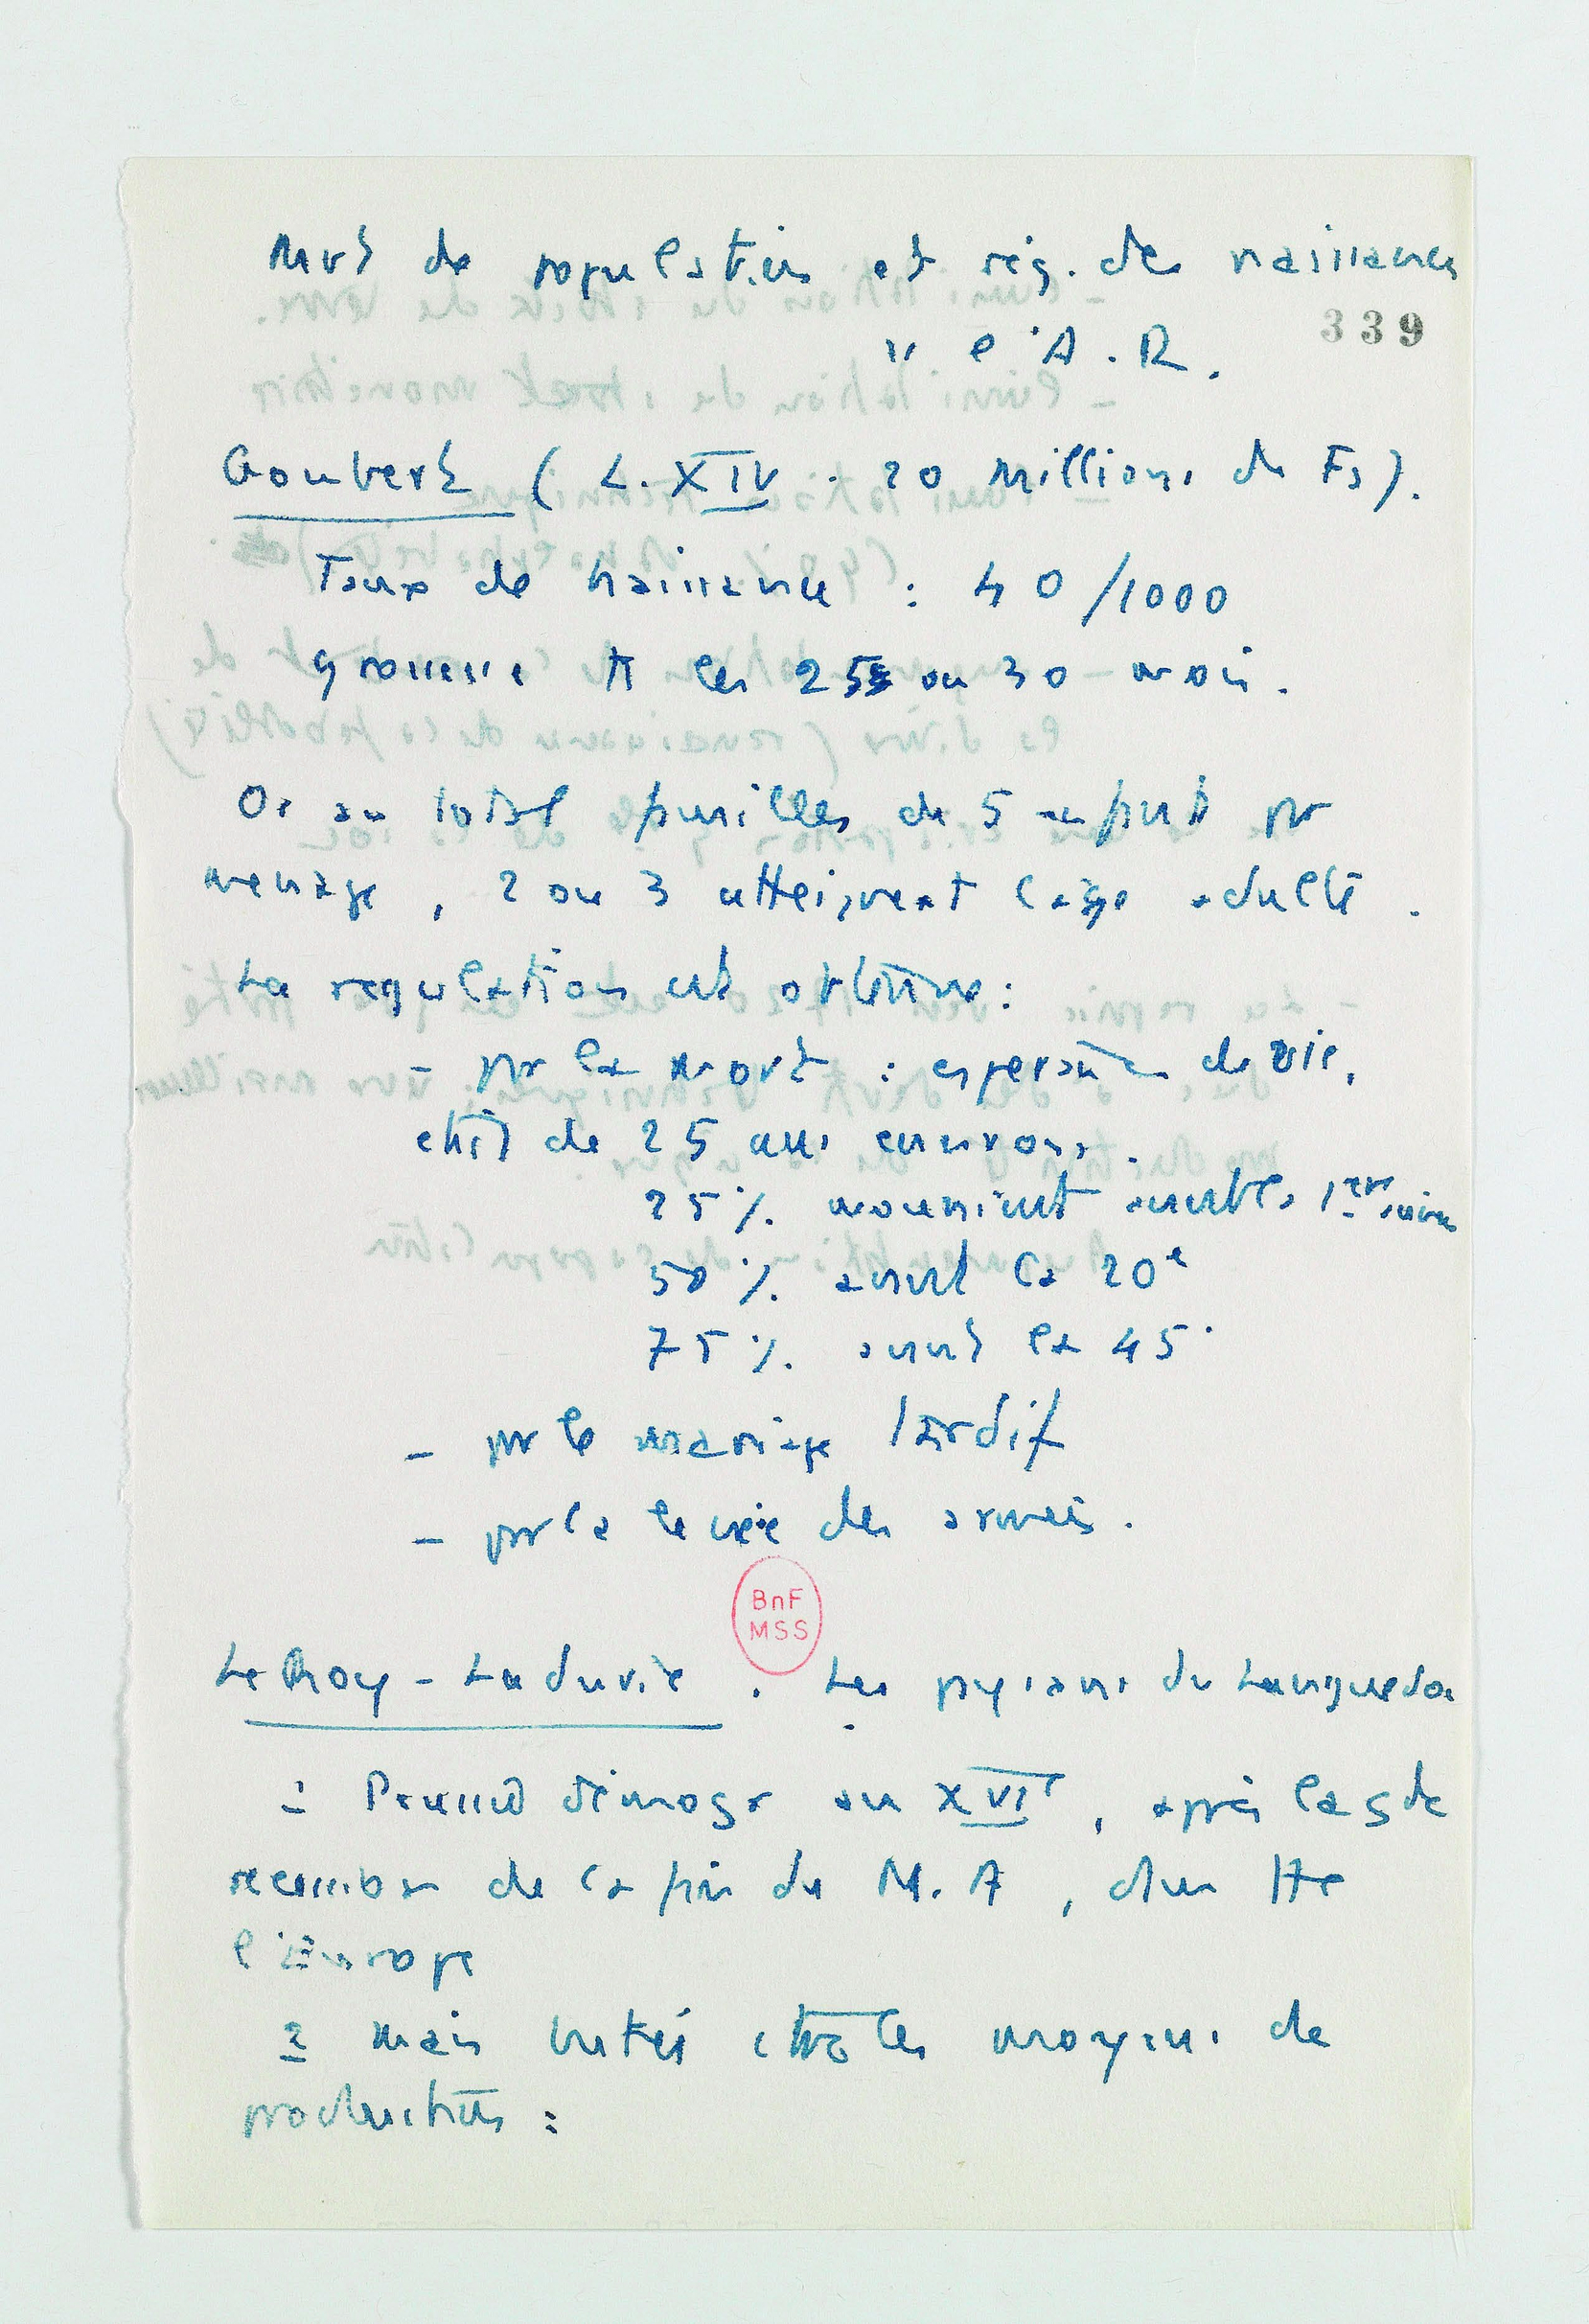 Mvt de population et rég. des naissances
339
ss l'A.R.
Goubert (L. XIV. 20 millions de Fs).
Taux de naissance : 40/1000
grossesse ts les 25 ou 30 mois.
Or au total familles de 5 enfants par
ménage, 2 ou 3 atteignent l'âge adulte.
La régulation est obtenue :
- par la mort : espérance de vie,
était de 25 ans environ.
25 % mouraient avant la 1ère année
50 % avant la 20e
75 % avant la 45e
- par le mariage tardif
- par la levée des armées.
BnF
MSS
Le Roy-Ladurie. Les paysans du Languedoc
1 démogr au XVIe, après la gde
de la fin du M.A, dans tte
l'Europe
2 mais les moyens de
production :